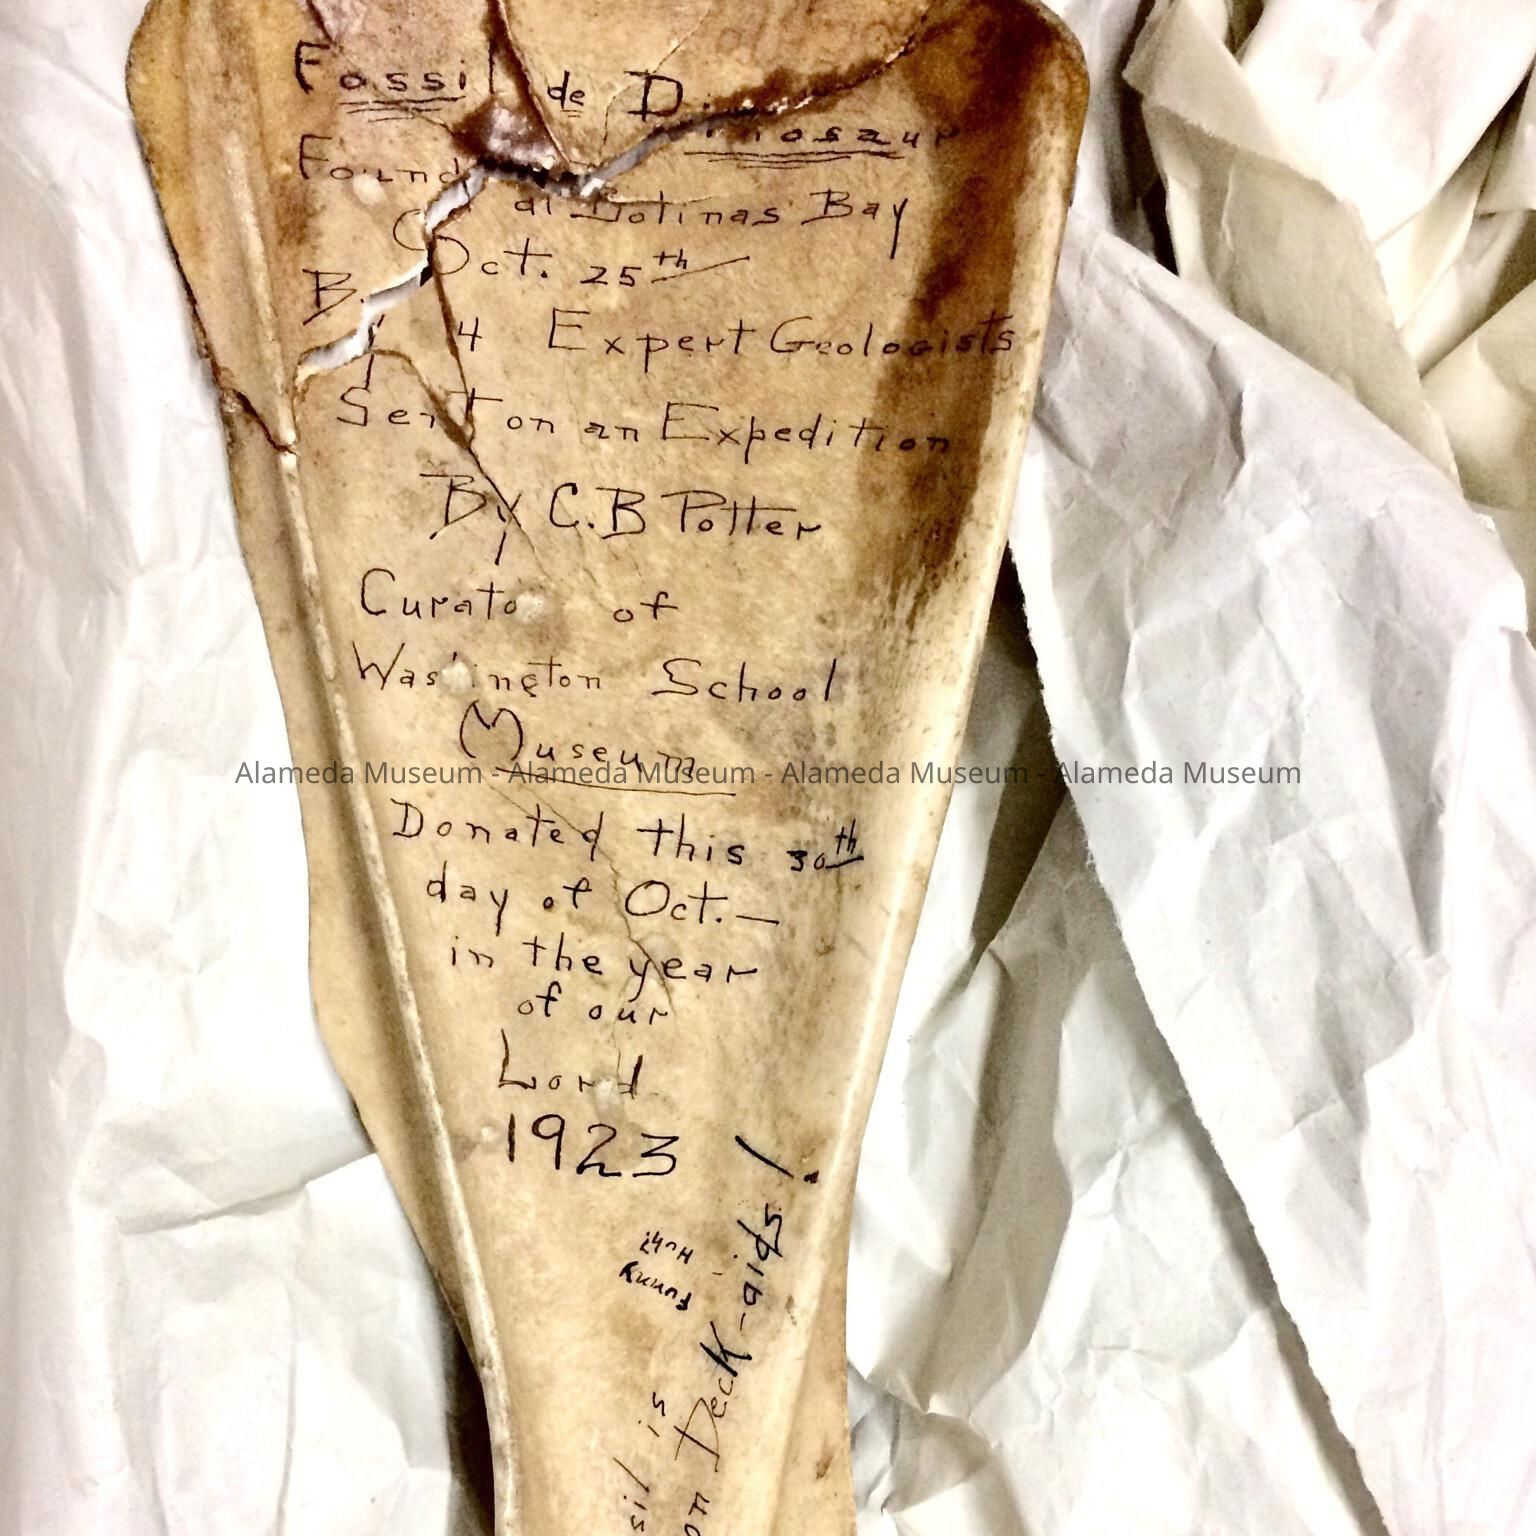 Fossil de Dinosaur
Found at Bolinas Bay
Oct. 25th
By 4 Expert Geologists
Sent on an Expedition
By C.B Potter
Curato of
Was ington School
Museum
Alameda Museum - Alameda Museum - Alameda Museum - Alameda Museum
Donated this 30th
day of Oct.—
in the year
of our
Lord
1923
Funny
Huh?
sil is
on Deck-aids!